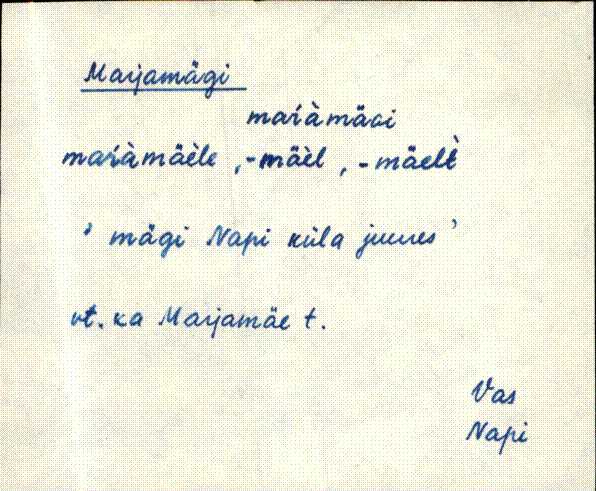 Marjamägi
maŕàmäGi
maŕàmäèle, -mäèl, -mäelt̀
' mägi Napi küla juures '
vt. ka Marjamäe t.
Vas
Napi